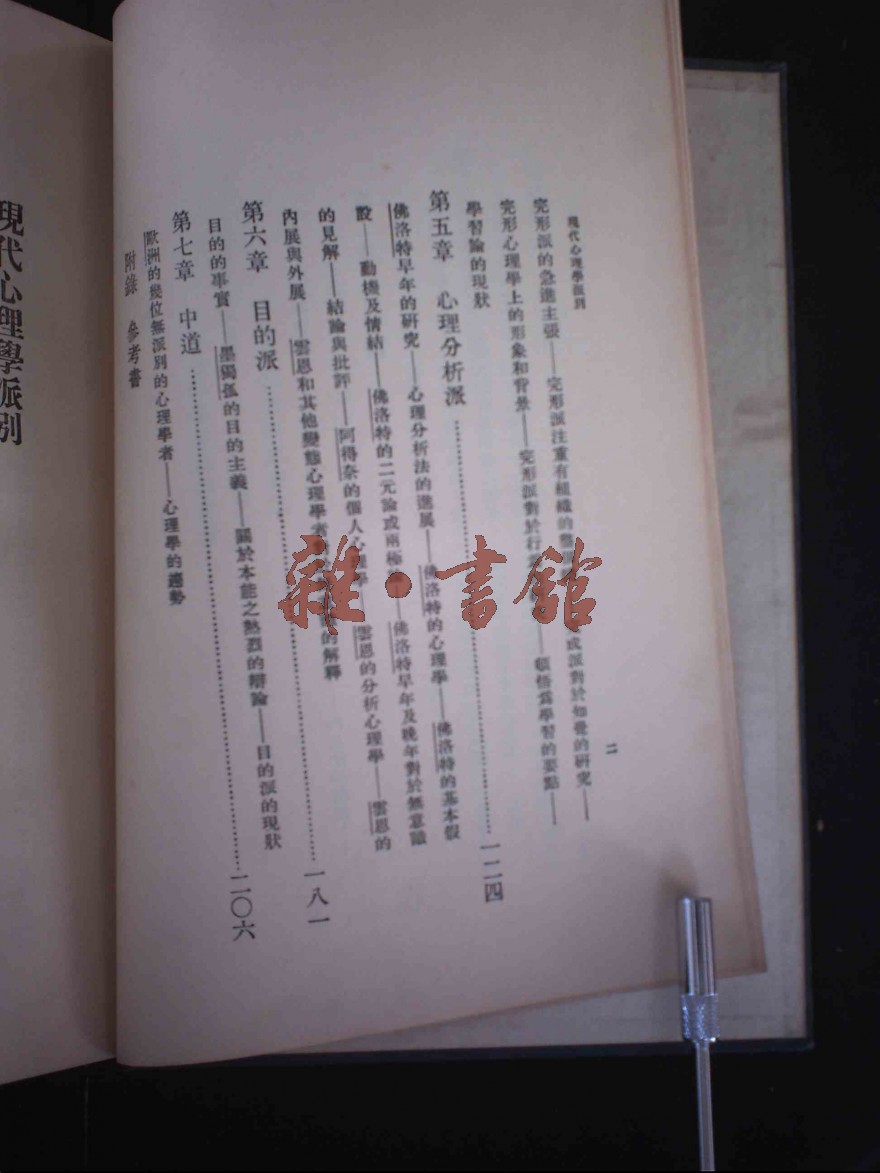 現代心理學派別
二
完形派的急進主張——完形派注重有組織的整
成派對於知覺的研究——
完形心理學上的形象和背景——完形派對於行
——頓悟為學習的要點——
學習論的現狀
第五章 心理分析派……一二四
佛洛特早年的研究——心理分析法的進展——佛洛特的心理學——佛洛特的基本假
設——動機及情結——佛洛特的二元論或兩極
——佛洛特早年及晚年對於無意識
的見解——結論與批評——阿得奈的個人心理學——雲恩的分析心理學——雲恩的
內展與外展——雲恩和其他變態心理學者
的解釋
第六章 目的派……一八一
目的的事實——墨獨孤的目的主義——關於本能之熱烈的辯論——目的派的現狀
第七章 中道……二〇六
歐洲的幾位無派別的心理學者——心理學的趨勢
附錄 參考書
現代心理學派別
雜·書館